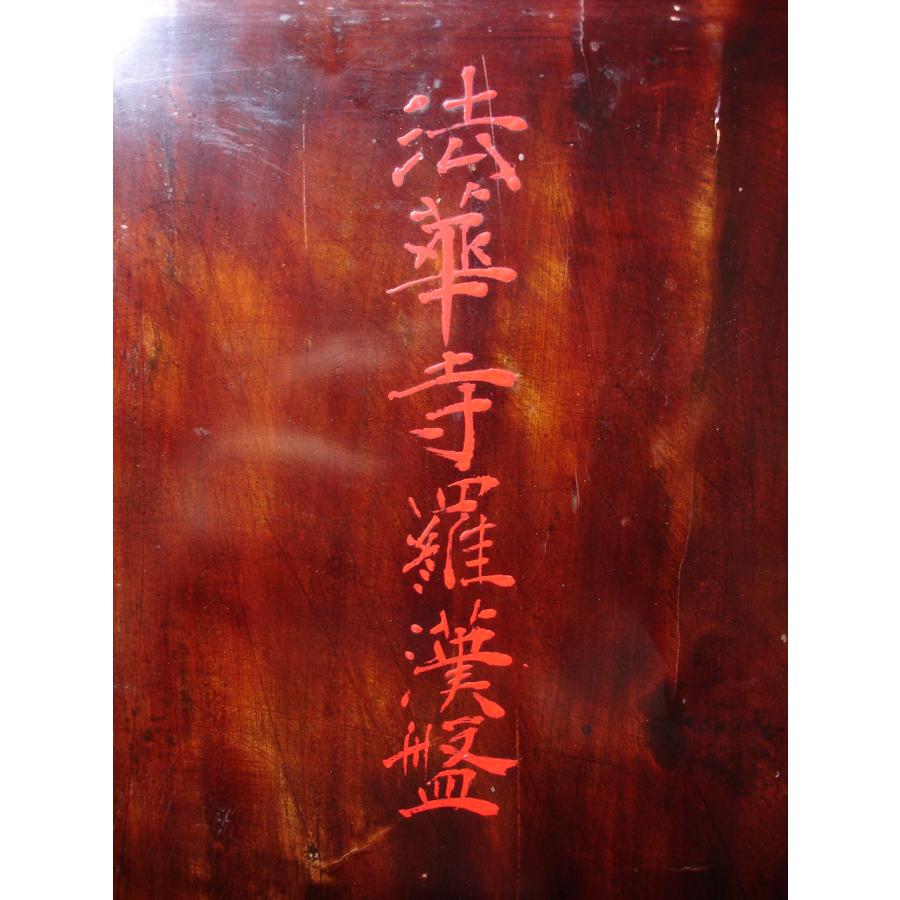 法華寺羅漢盤